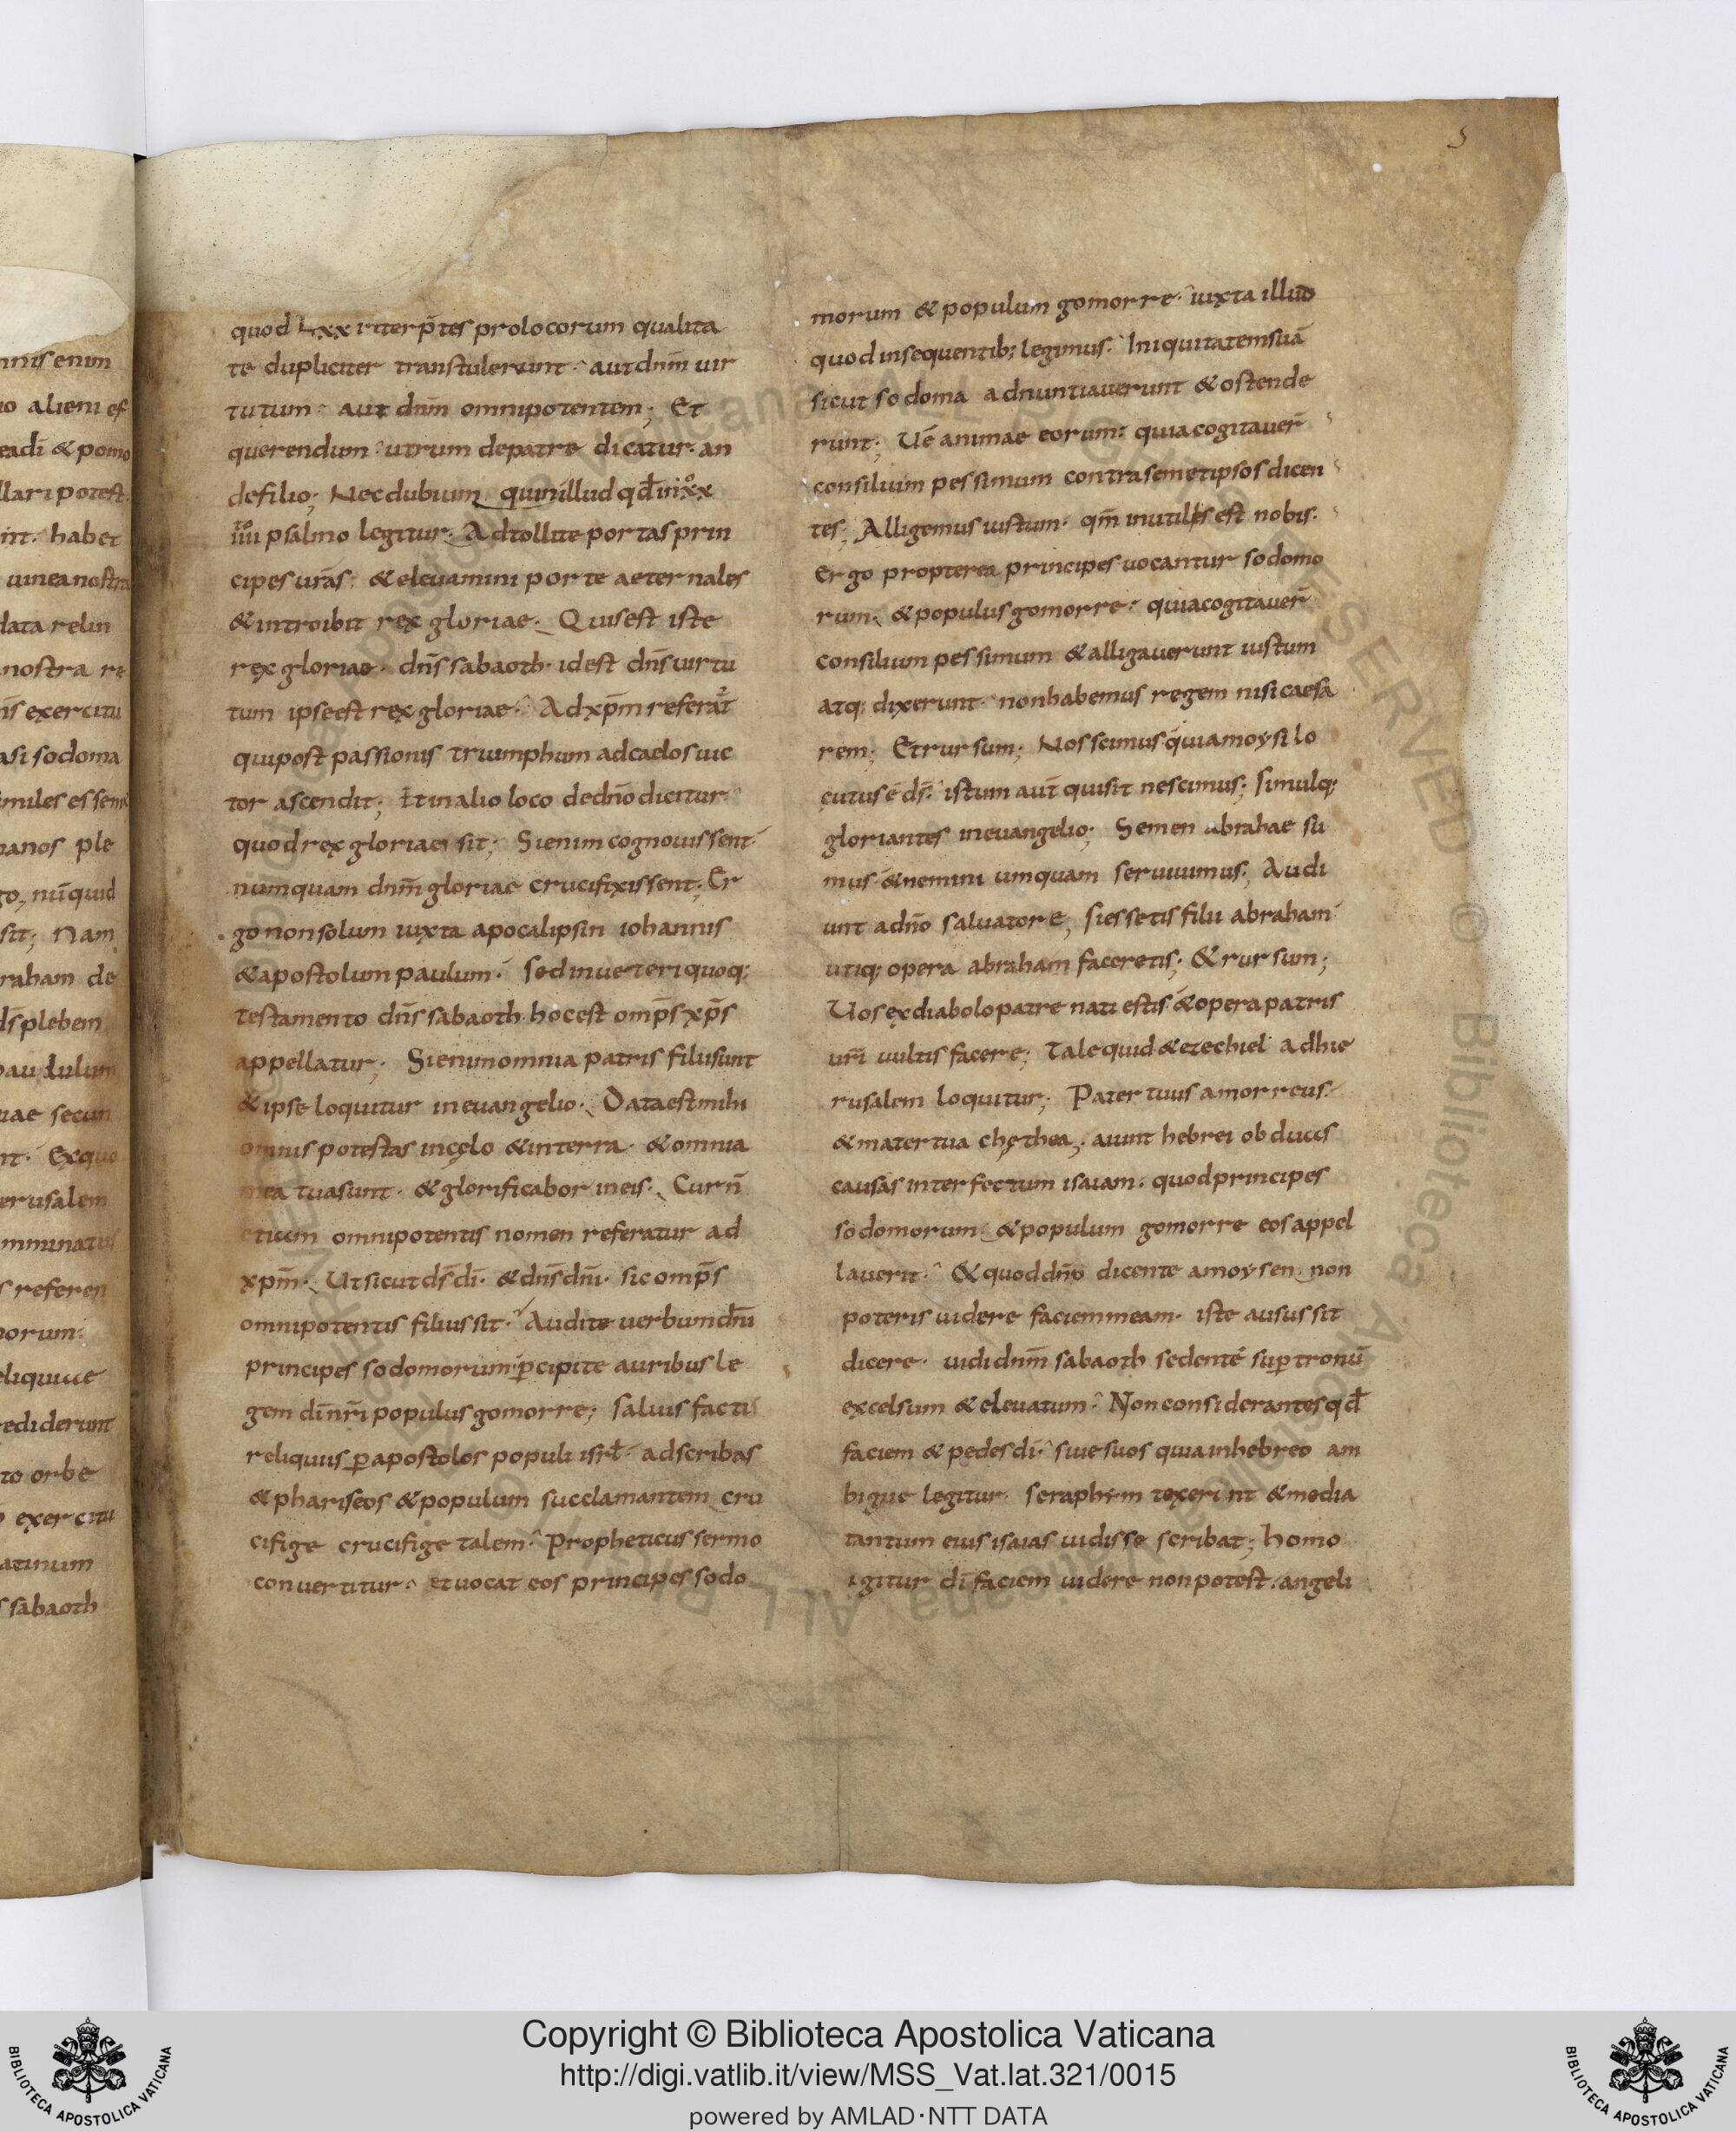 5
nnis enim
no alieni es
eadi & pomo
llari potest.
int. habet
uinea nostra
data relin
nostra re
is exercitu
asi sodoma
imiles essem
manos ple
go, nūquid
sit; Nam
raham de
ds plebem
paudulum
uae secun
nt. Exquo
ierusalem
mminatus
s referen
morum:
eliquiae
rediderunt
to orbe
exercitu
latinum
s sabaoth
quod Lxx interp̄tes prolocorum qualita
te dupliciter transtulerunt. aut dn̄m uir
tutum. aut dn̄m omnipotentem; Et
querendum utrum depatre dicatur. an
defilio; Nec dubium quinillud qd̄ inxx
iiii psalmo legitur. Adtollite portas prin
cipes ur̄as; & eleuamini porte aeternales
& introibit rex gloriae. Quis est iste
rex gloriae. dn̄s sabaoth. idest dn̄s uirtu
tum ipse est rex gloriae. Ad xp̄m referat̄
qui post passionis triumphum adcaelos uic
tor ascendit; Et in alio loco dedn̄o dicitur
quod rex gloriae sit; Si enim cognouissent
numquam dn̄m gloriae crucifixissent; Er
go non solum iuxta apocalipsin iohannis
& apostolum paulum. sed inueteri quoq;
testamento dn̄s sabaoth. hoc est omp̄s xp̄s
appellatur; Si enim omnia patris filii sunt
& ipse loquitur in euangelio. Data est mihi
omnis potestas incęlo & interra. & omnia
mea tua sunt. & glorificabor ineis. Cur n̄
etiam omnipotentis nomen referatur ad
xpm̄. Ut sicut ds̄ dī. & dn̄s dn̄i. sic omp̄s
omnipotentis filius sit. Audite uerbum dn̄i
principes sodomorum. p̄cipite auribus le
gem dī nr̄i populus gomorre; saluis factis
reliquiis p̄ apostolos populi isrl̄. ad scribas
& phariseos & populum succlamantem cru
cifige crucifige talem. Propheticus sermo
conuertitur. et uocat eos principes sodo
morum & populum gomorre. iuxta illud
quod insequentib; legimus. Iniquitatem suā
sicut sodoma adnuntiauerunt & ostende
runt; Uę animae eorum: quia cogitauer̄
consilium pessimum contra semetipsos dicen
tes; Alligemus iustum. qm̄ inutilis est nobis.
Ergo propterea principes uocantur sodomo
rum. & populus gomorre. quia cogitauer̄
consilium pessimum & alligauerunt iustum
atq; dixerunt. non habemus regem nisi caesa
rem; Et rursum; Nos scimus quia moysi lo
cutus ē ds̄. istum aut̄ qui sit nescimus; simulq;
gloriantes in euangelio; Semen abrahae su
mus & nemini umquam seruiuimus; Audi
unt adn̄o saluatore, si essetis filii abraham
utiq; opera abraham faceretis; & rursum;
Uos ex diabolo patre nati estis & opera patris
ur̄i uultis facere; Tale quid & ezechiel adhie
rusalem loquitur; Pater tuus amorreus.
& mater tua chęthea, aiunt hebrei ob duas
causas interfectum isaiam. quod principes
sodomorum & populum gomorre eos appel
lauerit. & quod dn̄o dicente amoysen. non
poteris uidere faciem meam. iste ausus sit
dicere. uidi dn̄m sabaoth sedentē sup̄ tronū
excelsum & eleuatum. Non considerantes qd̄
faciem & pedes dī. siue suos quia inhebreo am
bigue legitur. seraphym texerint & media
tantum eius isaias uidisse scribat; homo
igitur dī faciem uidere non potest. angeli
Copyright © Biblioteca Apostolica Vaticana
http://digi.vatlib.it/view/MSS_Vat.lat.321/0015
powered by AMLAD·NTT DATA
BIBLIOTECA APOSTOLICA VATICANA
BIBLIOTECA APOSTOLICA VATICANA